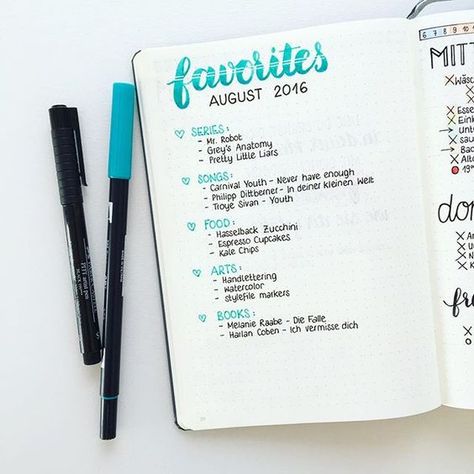 favorites
AUGUST 2016
SERIES:
- Mr. Robot
- Grey's Anatomy
- Pretty Little Liars
SONGS:
- Carnival Youth - Never have enough
- Philipp Dittberner - In deiner kleinen Welt
- Troye Sivan - Youth
FOOD:
- Hasselback Zucchini
- Espresso Cupcakes
- Kale Chips
ARTS:
- Handlettering
- Watercolor
- stylefile markers
BOOKS:
- Melanie Raabe - Die Falle
- Harlan Coben - Ich vermisse dich
6 7 8 9 10 11
MITT
Wäsc
Esse
Eink
unt
sau
Bac
Alt
19
don
fr